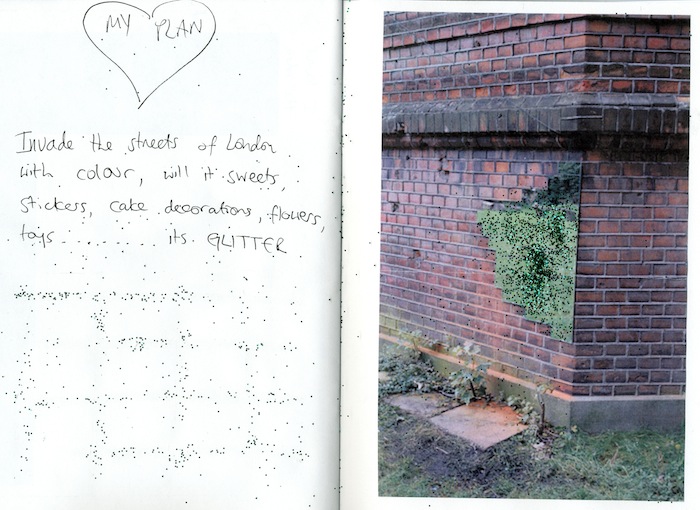 MY PLAN
Invade the streets of London
with colour, will it sweets,
stickers, cake decorations, flowers,
toys........... its GLITTER